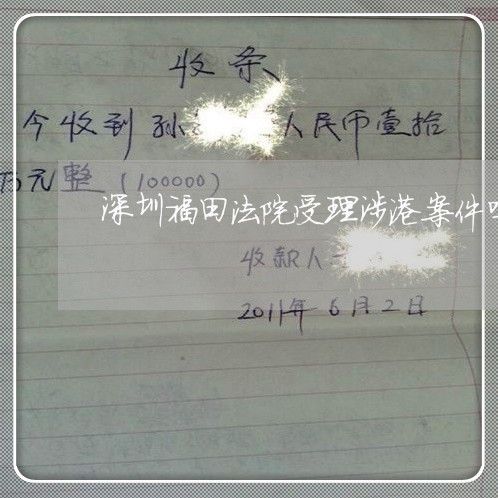 收条
今收到孙 人民币壹拾
万元整(100000)
深圳福田法院受理涉港案件吗
收款人
2011年6月2日